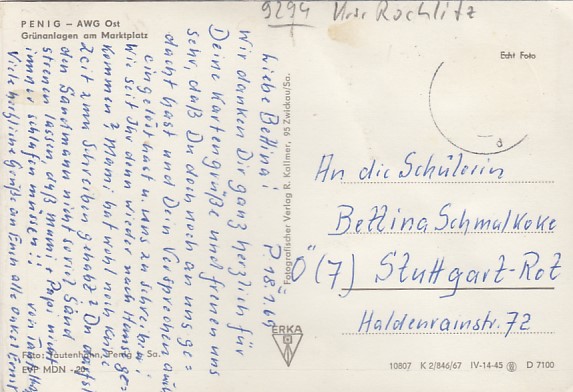 9294 Krs. Rochlitz
PENIG – AWG Ost
Grünanlagen am Marktplatz
Echt Foto
Liebe Bettina! P. 18.1.69
Wir danken Dir ganz herzlich für
Deine Kartengrüße und freuen uns
sehr, daß Du doch noch an uns ge=
dacht hast und Dein Versprechen
eingelöst hast u. uns zu schreiben.
Wie seit Ihr denn wieder nach Hause ge-
kommen? Mami hat wohl noch keine
Zeit zum Schreiben gehabt? Du darfst
den Sandmann nicht soviel Sand
streuen lassen daß Mami + Papi nicht
immer schlafen müssen!!
Viele herzliche Grüße an Euch alle Onkel Ernst
An die Schülerin
Bettina Schmalkoke
Ö (7) Stuttgart-Rot
Haldenrainstr. 72
Fotografischer Verlag R. Kallmer, 95 Zwickau/Sa.
ERKA
Foto: Tautenhahn, Penig Sa.
EVP MDN -,20
10807 K 2/846/67 IV-14-45 D 7100